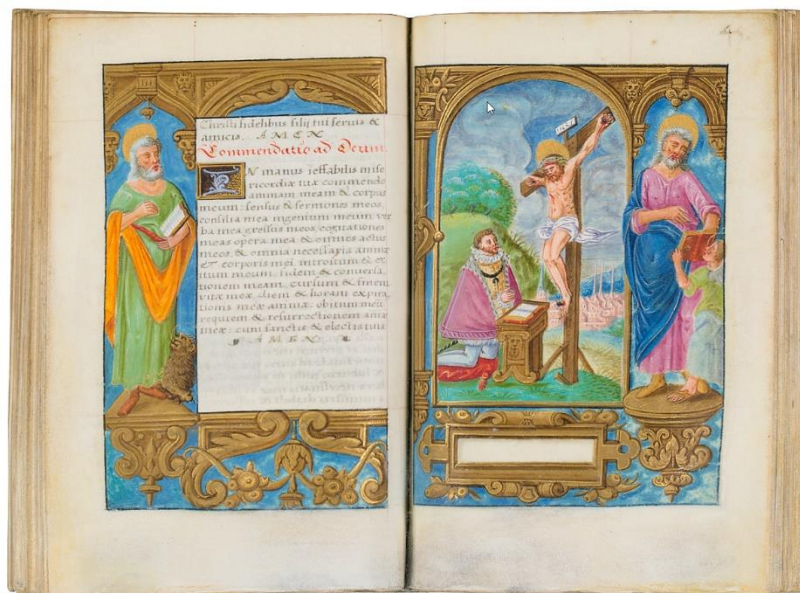 Christi fidelibus filij tui servis &
amicis. AMEN
Commendatio ad Deum
IN manus ieffabilis mise
ricordiæ tuæ commendo
animam meam & corpus
meum: sensus & sermones meos
consilia mea ingenium meum ver
ba mea gressus meos, cogitationes
meas opera mea & omnes actus
meos, & omnia necessaria animæ
et corporis mei, introitum & ex
itum meum: fidem & conversa
tionem meam, cursum & finem
vitæ meæ diem & horam expira
tionis meæ animæ: obitum meū
requiem & resurrectionem animæ
meæ: cum sanctis & electis tuis
AMEN
INRI